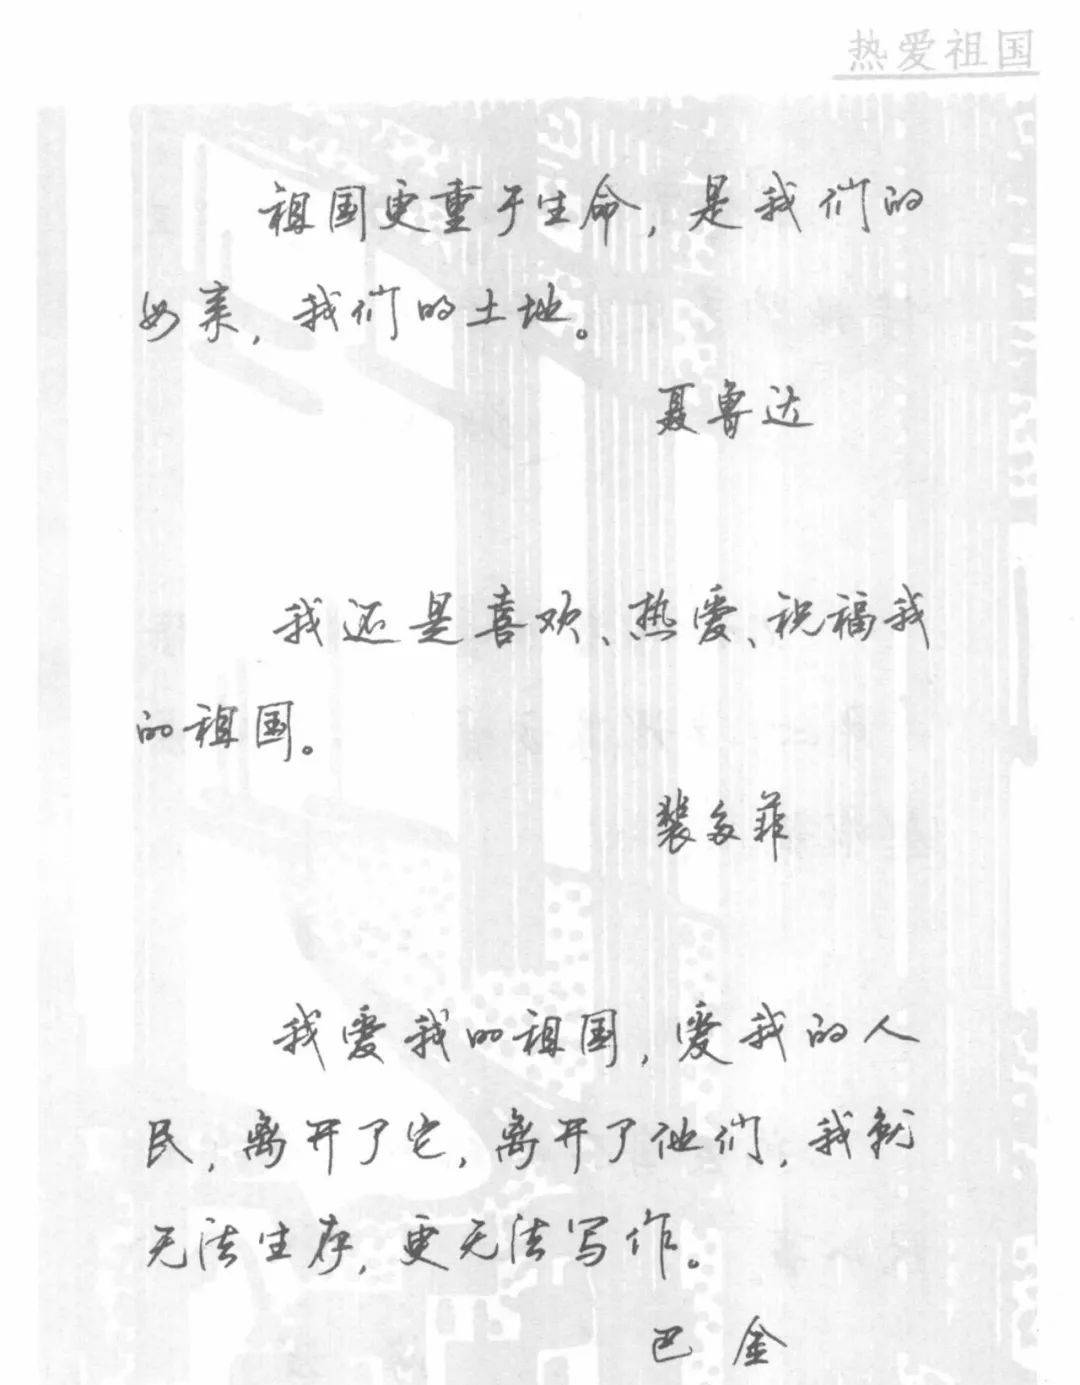 热爱祖国
祖国更重于生命，是我们的
母亲，我们的土地。
聂鲁达
我还是喜欢、热爱、祝福我
的祖国。
裴多菲
我爱我的祖国，爱我的人
民，离开了它，离开了他们，我就
无法生存，更无法写作。
巴金